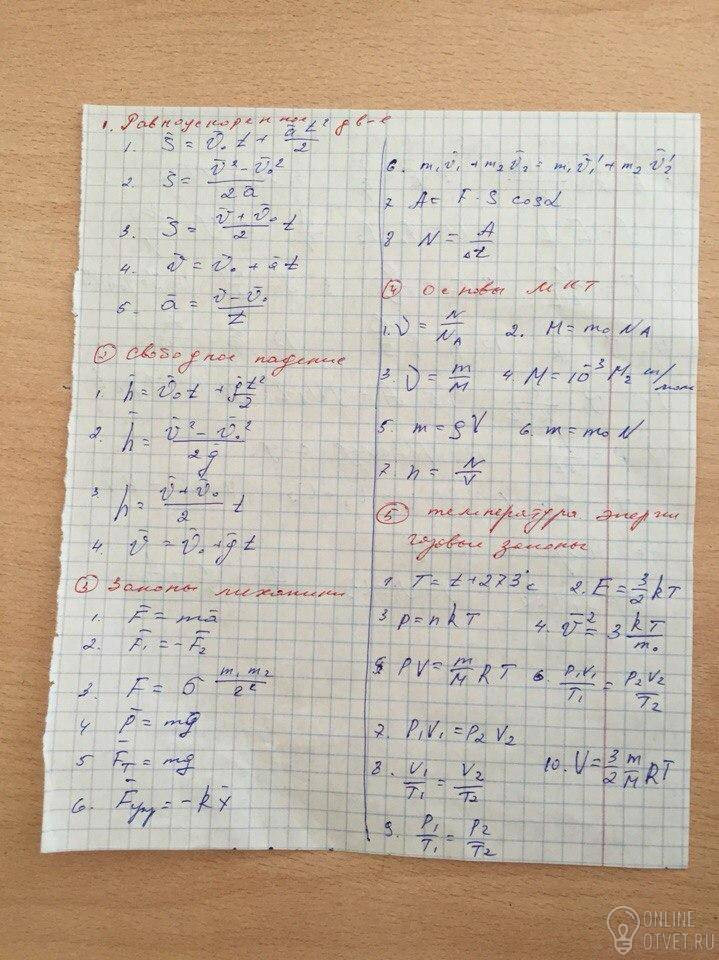 1. Равноускоренное дв-е
1. S̄ = v̄₀ t + āt²/2
2. S̄ = (v̄² − v̄₀²)/2ā
3. S̄ = (v̄ + v̄₀)/2 t
4. v̄ = v̄₀ + āt
5. ā = (v̄ − v̄₀)/t
② Свободное падение
1. h̄ = v̄₀t + ḡt²/2
2. h̄ = (v̄² − v̄₀²)/2ḡ
3. h̄ = (v̄ + v̄₀)/2 t
4. v̄ = v̄₀ + ḡt
③ Законы механики
1. F̄ = mā
2. F̄₁ = − F̄₂
3. F = G m₁m₂/r²
4 p̄ = mḡ
5 F̄т = mḡ
6. F̄упр = − kx̄
6. m₁v̄₁ + m₂v̄₂ = m₁v̄₁' + m₂v̄₂'
7 A = F · S cosα
8 N = A/Δt
④ Основы МКТ
1. ν = N/N_A 2. M = m₀ N_A
3 ν = m/M 4. M = 10⁻³ Mᵣ кг/моль
5. m = ρV 6. m = m₀ N
7. n = N/V
⑤ температура энергии
газовые законы
1. T = t + 273°c 2. E = 3/2 kT
3 p = nkT 4. v̄² = 3 kT/m₀
5 PV = m/M RT 6. P₁V₁/T₁ = P₂V₂/T₂
7. P₁V₁ = P₂V₂
8. V₁/T₁ = V₂/T₂ 10. U = 3/2 m/M RT
9. P₁/T₁ = P₂/T₂
ONLINE
OTVET.RU